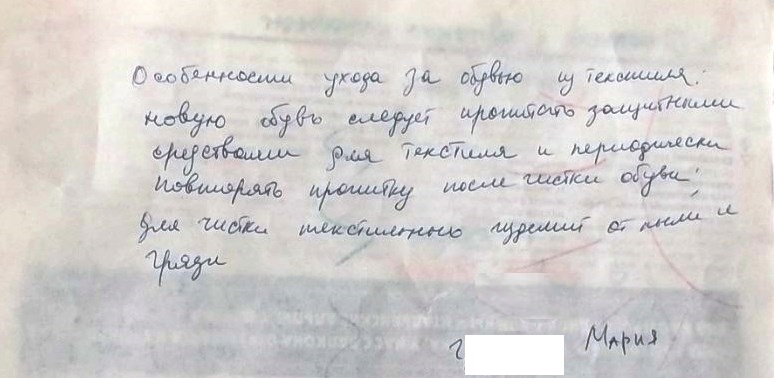 Особенности ухода за обувью из текстиля:
новую обувь следует пропитать защитными
средствами для текстиля и периодически
повторять пропитку после чистки обуви;
для чистки текстильных изделий от пыли и
грязи
Мария